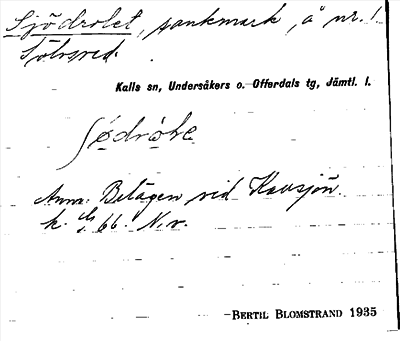 Sjödrolet, sankmark, å nr. 1
Kalls sn, Undersåkers o. Offerdals tg, Jämtl. l.
Anm. Belägen vid Kallsjön.
k. bl. 66. N.v.
BERTIL BLOMSTRAND 1935